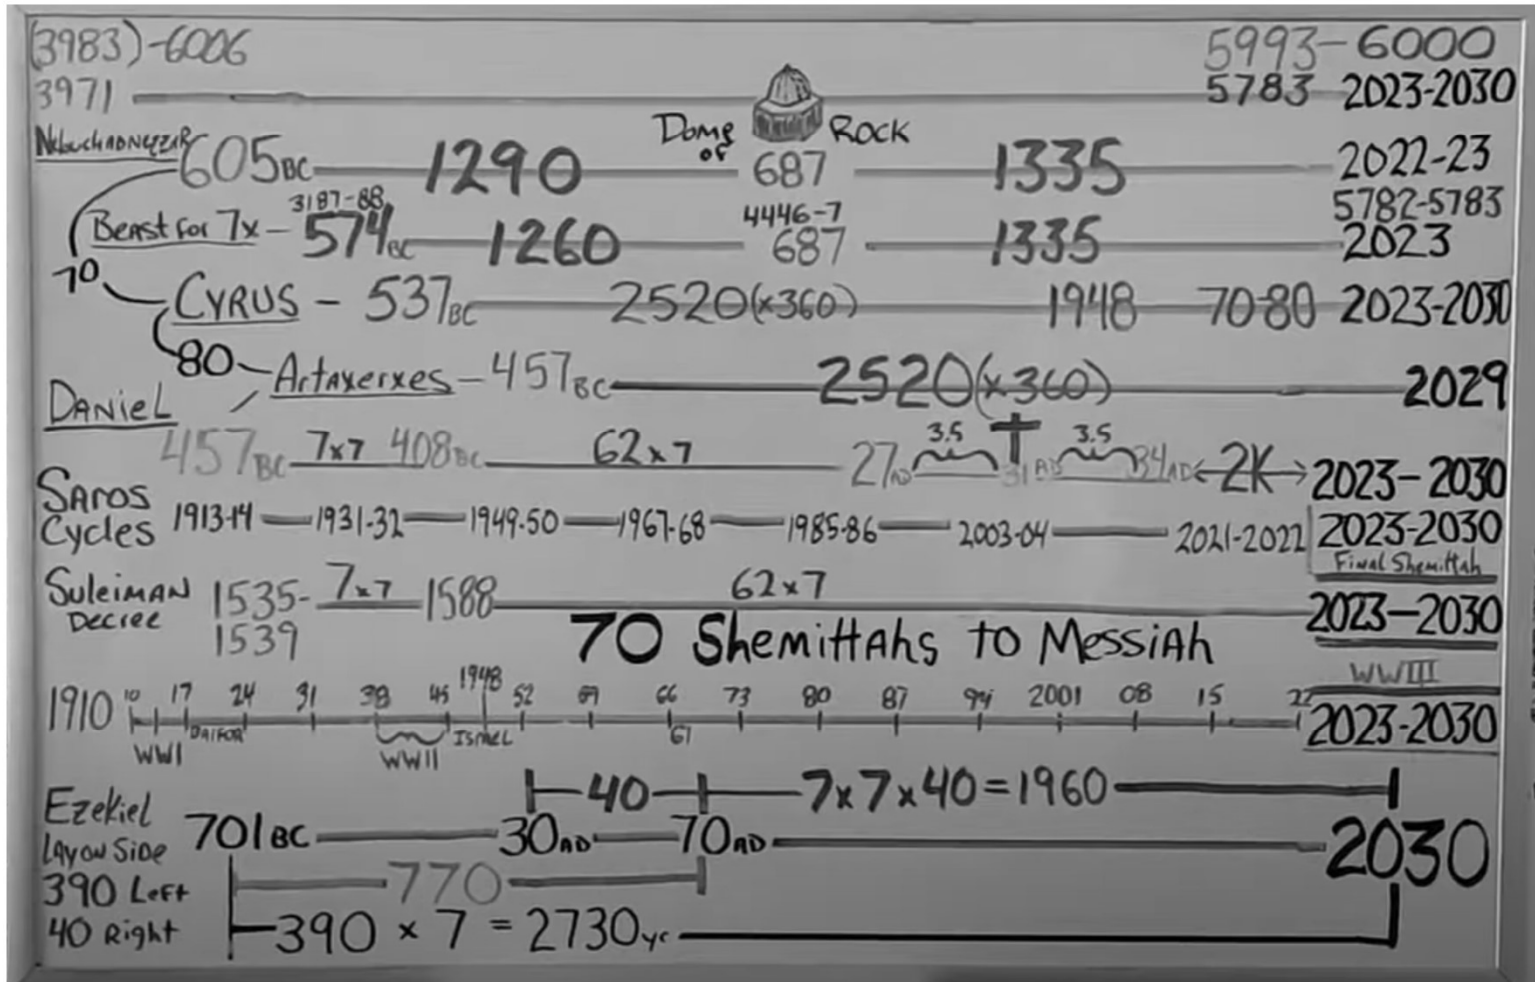 (3983)-6006 5993-6000
3971 5783 2023-2030
Dome of Rock
NebuchADNezzAR 605BC 1290 687 1335 2022-23
3187-88 4446-7 5782-5783
Beast for 7x - 574BC 1260 687 1335 2023
70
CYRUS - 537BC 2520(x360) 1948 70-80 2023-2030
80 Artaxerxes - 457BC 2520(x360) 2029
DANieL
457BC 7x7 408BC 62x7 27AD 3.5 31AD 3.5 34AD 2K 2023-2030
Saros Cycles 1913-14 1931-32 1949-50 1967-68 1985-86 2003-04 2021-2022 2023-2030
Final Shemittah
Suleiman Decree 1535- 7x7 1588 62x7 2023-2030
1539
70 Shemittahs to Messiah
WWIII
1910 10 17 24 31 38 45 1948 52 59 66 73 80 87 94 2001 08 15 22 2023-2030
WWI WWII Israel 67
40 7x7x40=1960
Ezekiel 701BC 30AD 70AD 2030
Lay on Side
390 Left 770
40 Right 390 x 7 = 2730yr